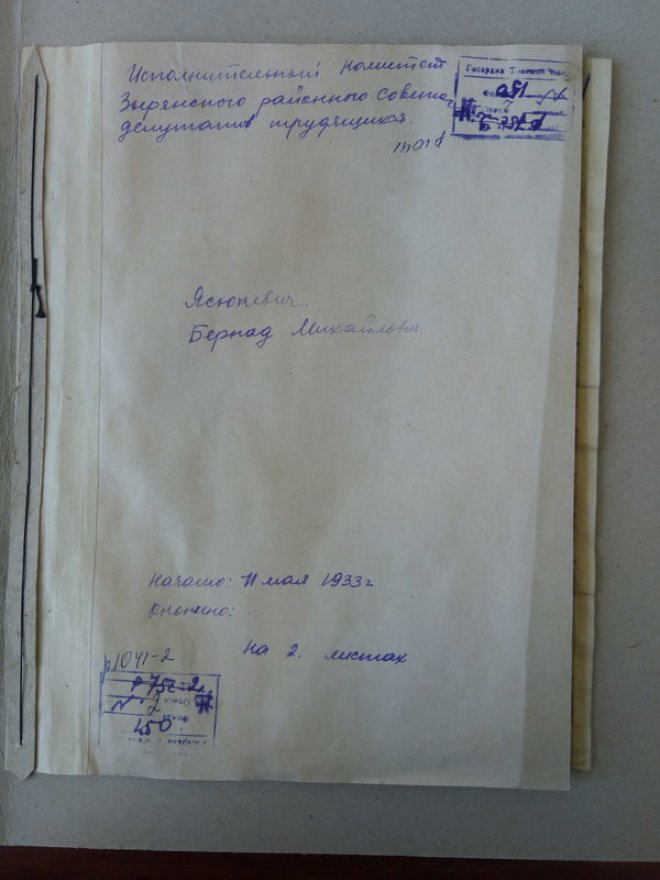 Исполнительный комитет
Зырянского районного Совета
депутатов трудящихся.
Госархив Томской
р1041
Ясюкевич.
Бернад Михайлович.
Начато: 11 мая 1933 г
Окончено:
На 2. листах
р1041-2